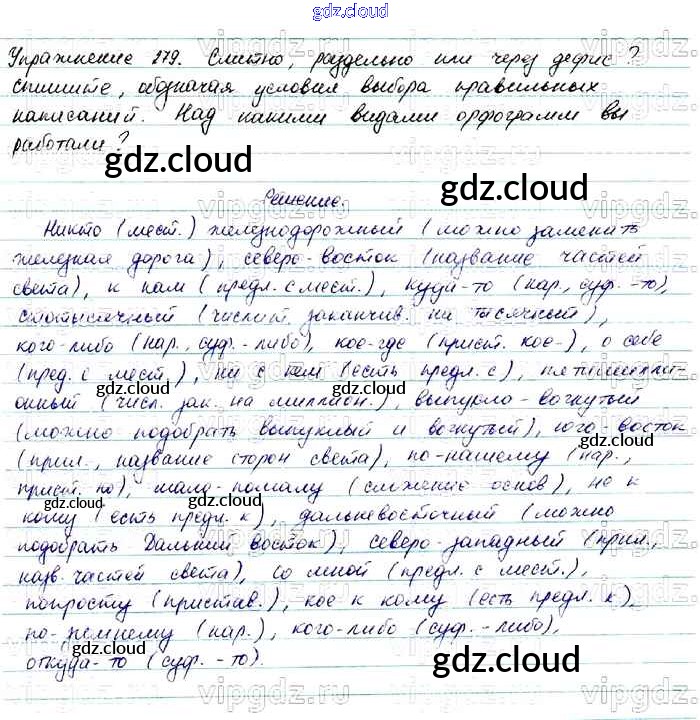 gdz.cloud
Упражнение 279. Слитно, раздельно или через дефис?
Спишите, обозначая условия выбора правильных
написаний. Над какими видами орфограмм вы
работали?
gdz.cloud
gdz.cloud
Решение.
Никто (мест.) железнодорожный (можно заменить
железная дорога), северо-восток (название частей
света), к нам (предл. с мест.), куда-то (нар., суф. -то),
стотысячный (числит. заканчив. на тысячный),
кого-либо (нар., суф. -либо), кое-где (прист. кое-), о себе
(пред. с мест.), ни с кем (есть предл. с), пятимилли-
gdz.cloud
gdz.cloud
онный (числ. зак. на миллион.), выпукло-вогнутый
(можно подобрать выпуклый и вогнутый), юго-восток
gdz.cloud
(прил., название сторон света), по-нашему (нар.,
прист. по), мало-помалу (сложение основ), не к
gdz.cloud
gdz.cloud
кому (есть предл. к), дальневосточный (можно
подобрать Дальний восток), северо-западный (прил.,
назв. частей света), со мной (предл. с мест.),
попросту (пристав.), кое к кому (есть предл. к),
по-немнему (нар.), кого-либо (суф. -либо),
откуда-то (суф. -то).
gdz.cloud